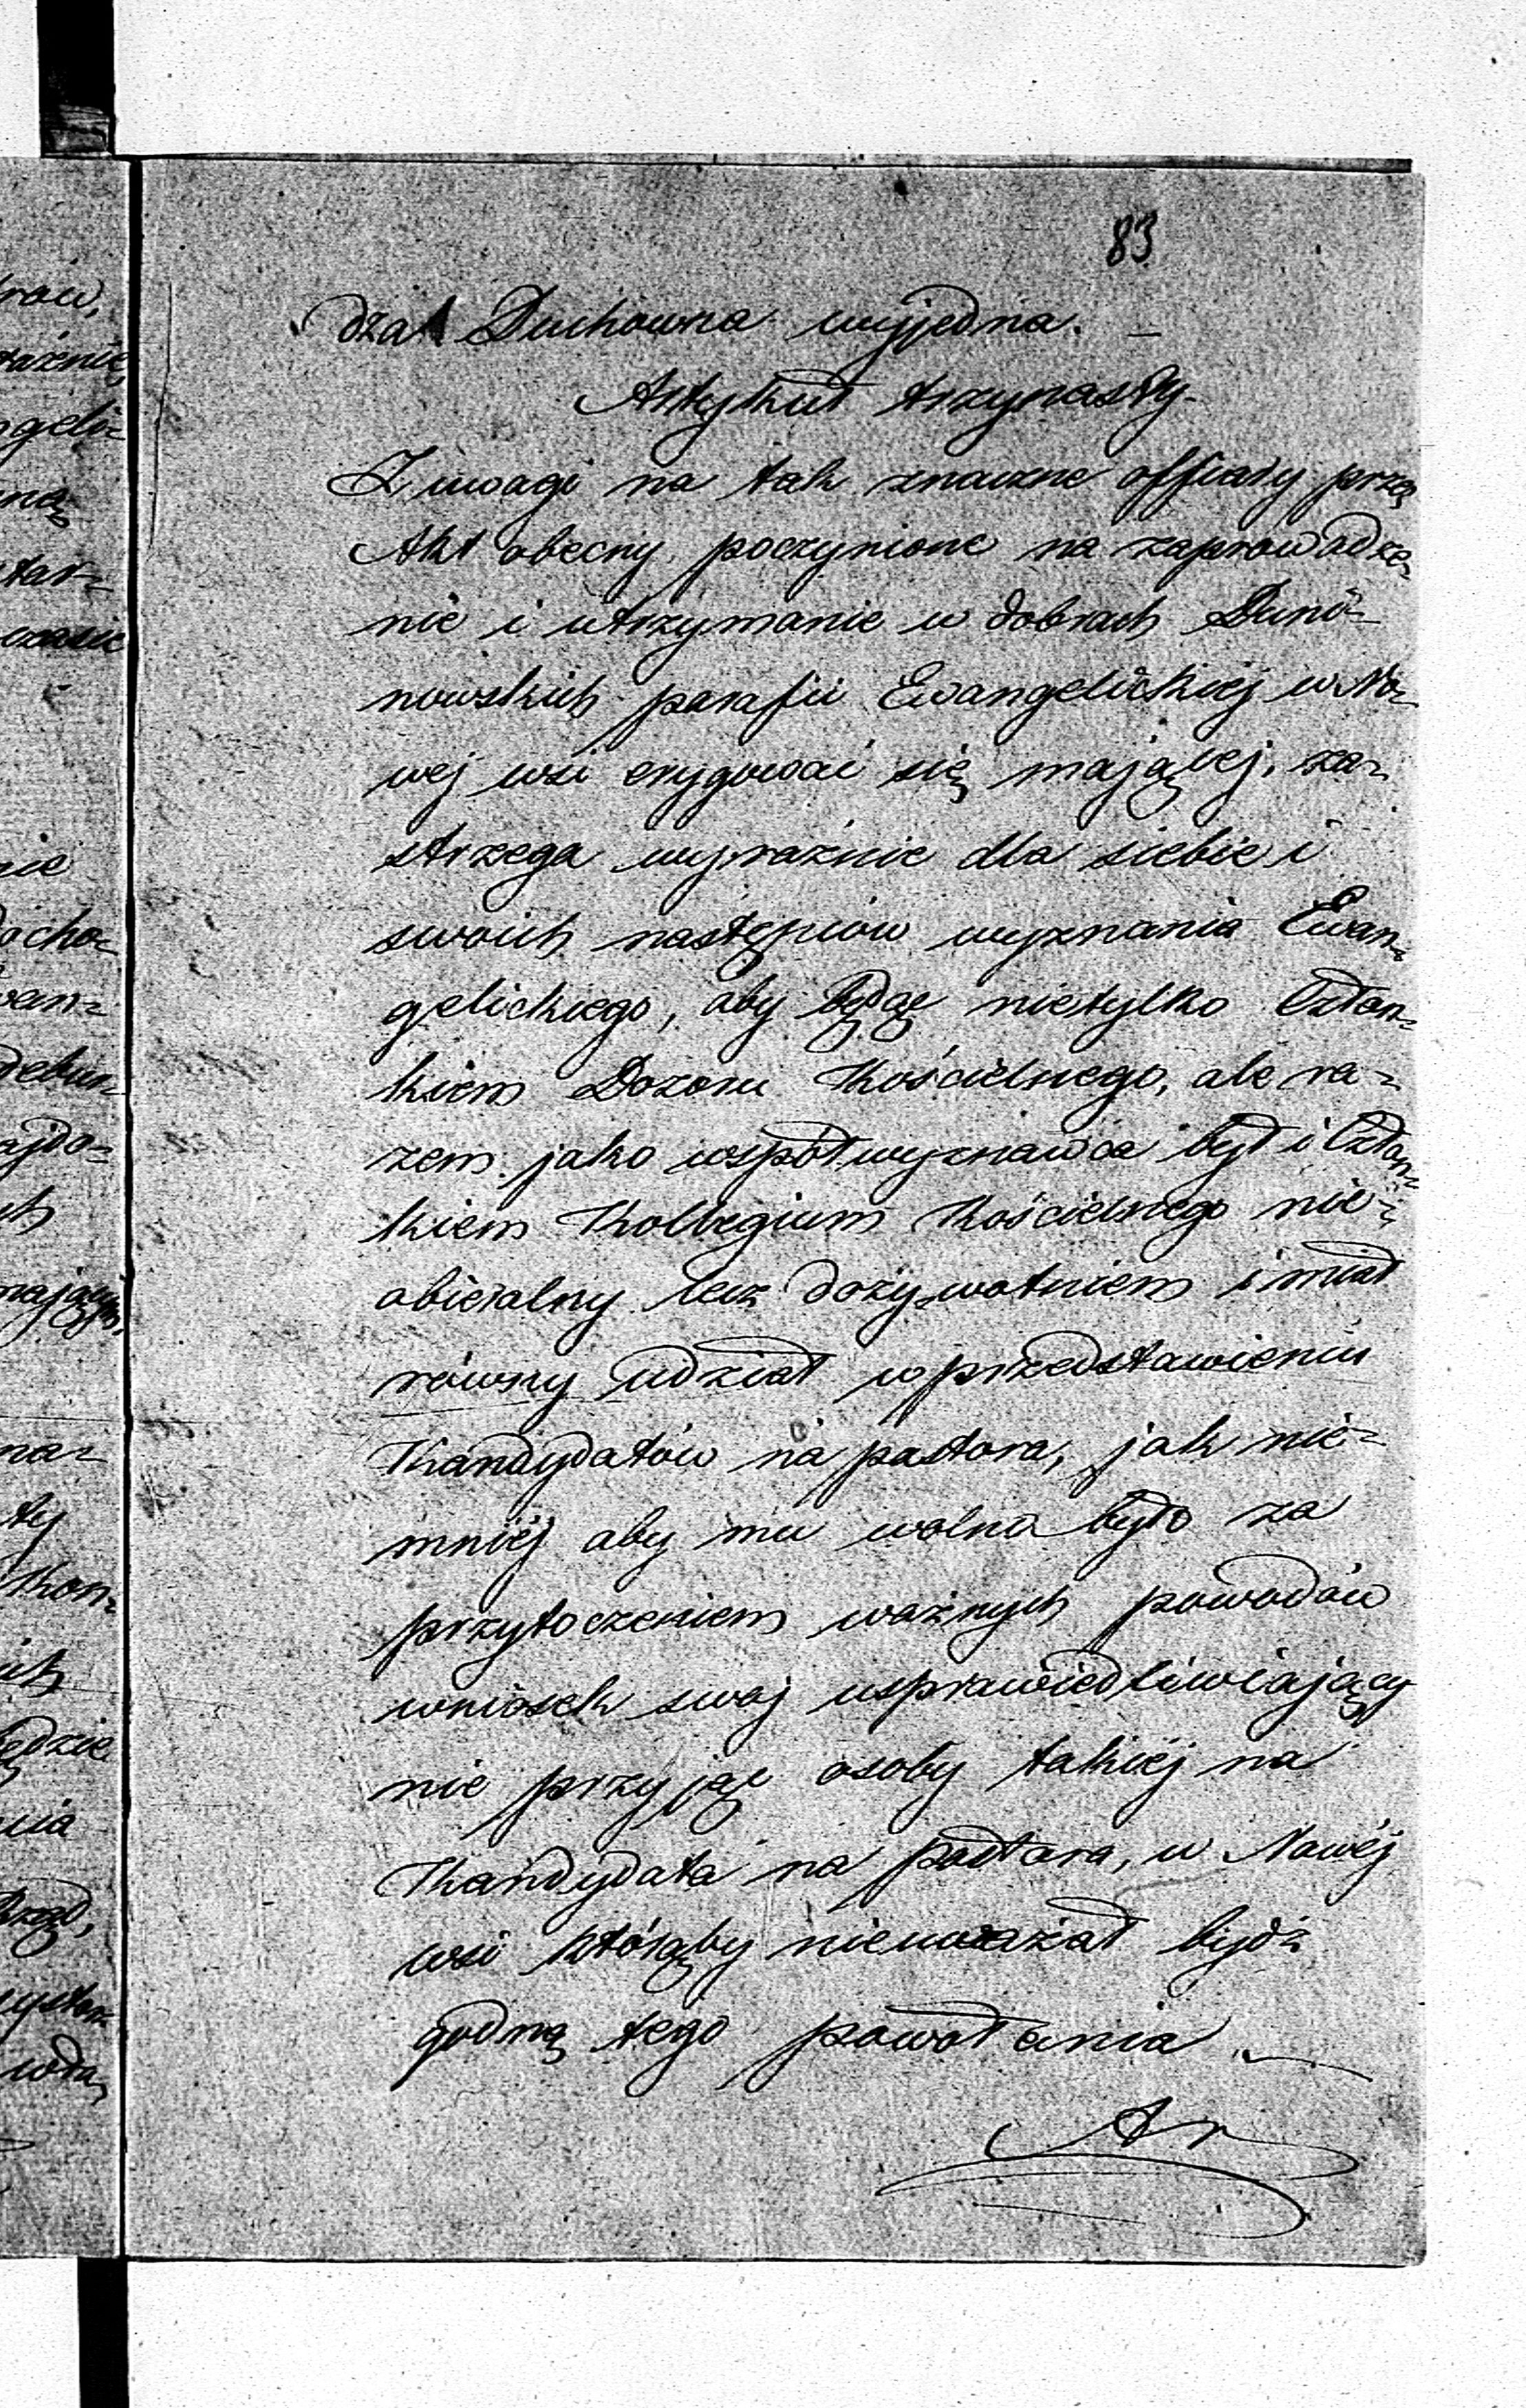 83
dza Duchowna wyjedna. —
Artykuł trzynasty
Z uwagi na tak znaczne offiary przez
Akt obecny poczynione na zaprowadze-
nie i utrzymanie w dobrach Duni-
nowskich parafii Ewangelickiej w No-
wej wsi erygować się mającej, za-
strzega wyraźnie dla siebie i
swoich następców wyznania Ewan-
gelickiego, aby będąc nietylko Człon-
kiem Dozoru Kościelnego, ale ra-
zem jako współwyznawca był i Człon-
kiem Kollegium Kościelnego nie-
obieralny lecz dożywotniem i miał
równy udział w przedstawieniu
Kandydatów na pastora, jak nie-
mniéj aby mu wolno było za
przytoczeniem ważnych powodów
wniosek swoj usprawiedliwiający
nie przyjąć osoby takiéj na
Kandydata na pastora, w Nowéj
wsi którąby nieuważał bydź
godną tego powołania.
Ar